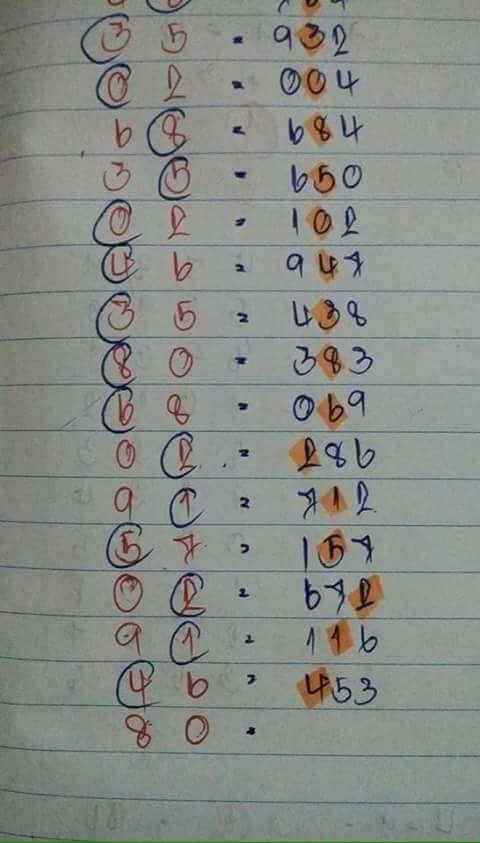 3 5 = 932
0 2 = 004
6 8 = 684
3 5 = 650
0 2 = 102
4 6 = 947
3 5 = 438
8 0 = 383
6 8 = 069
0 2 = 286
9 1 = 712
5 7 = 157
0 2 = 672
9 1 = 116
4 6 = 453
8 0 =